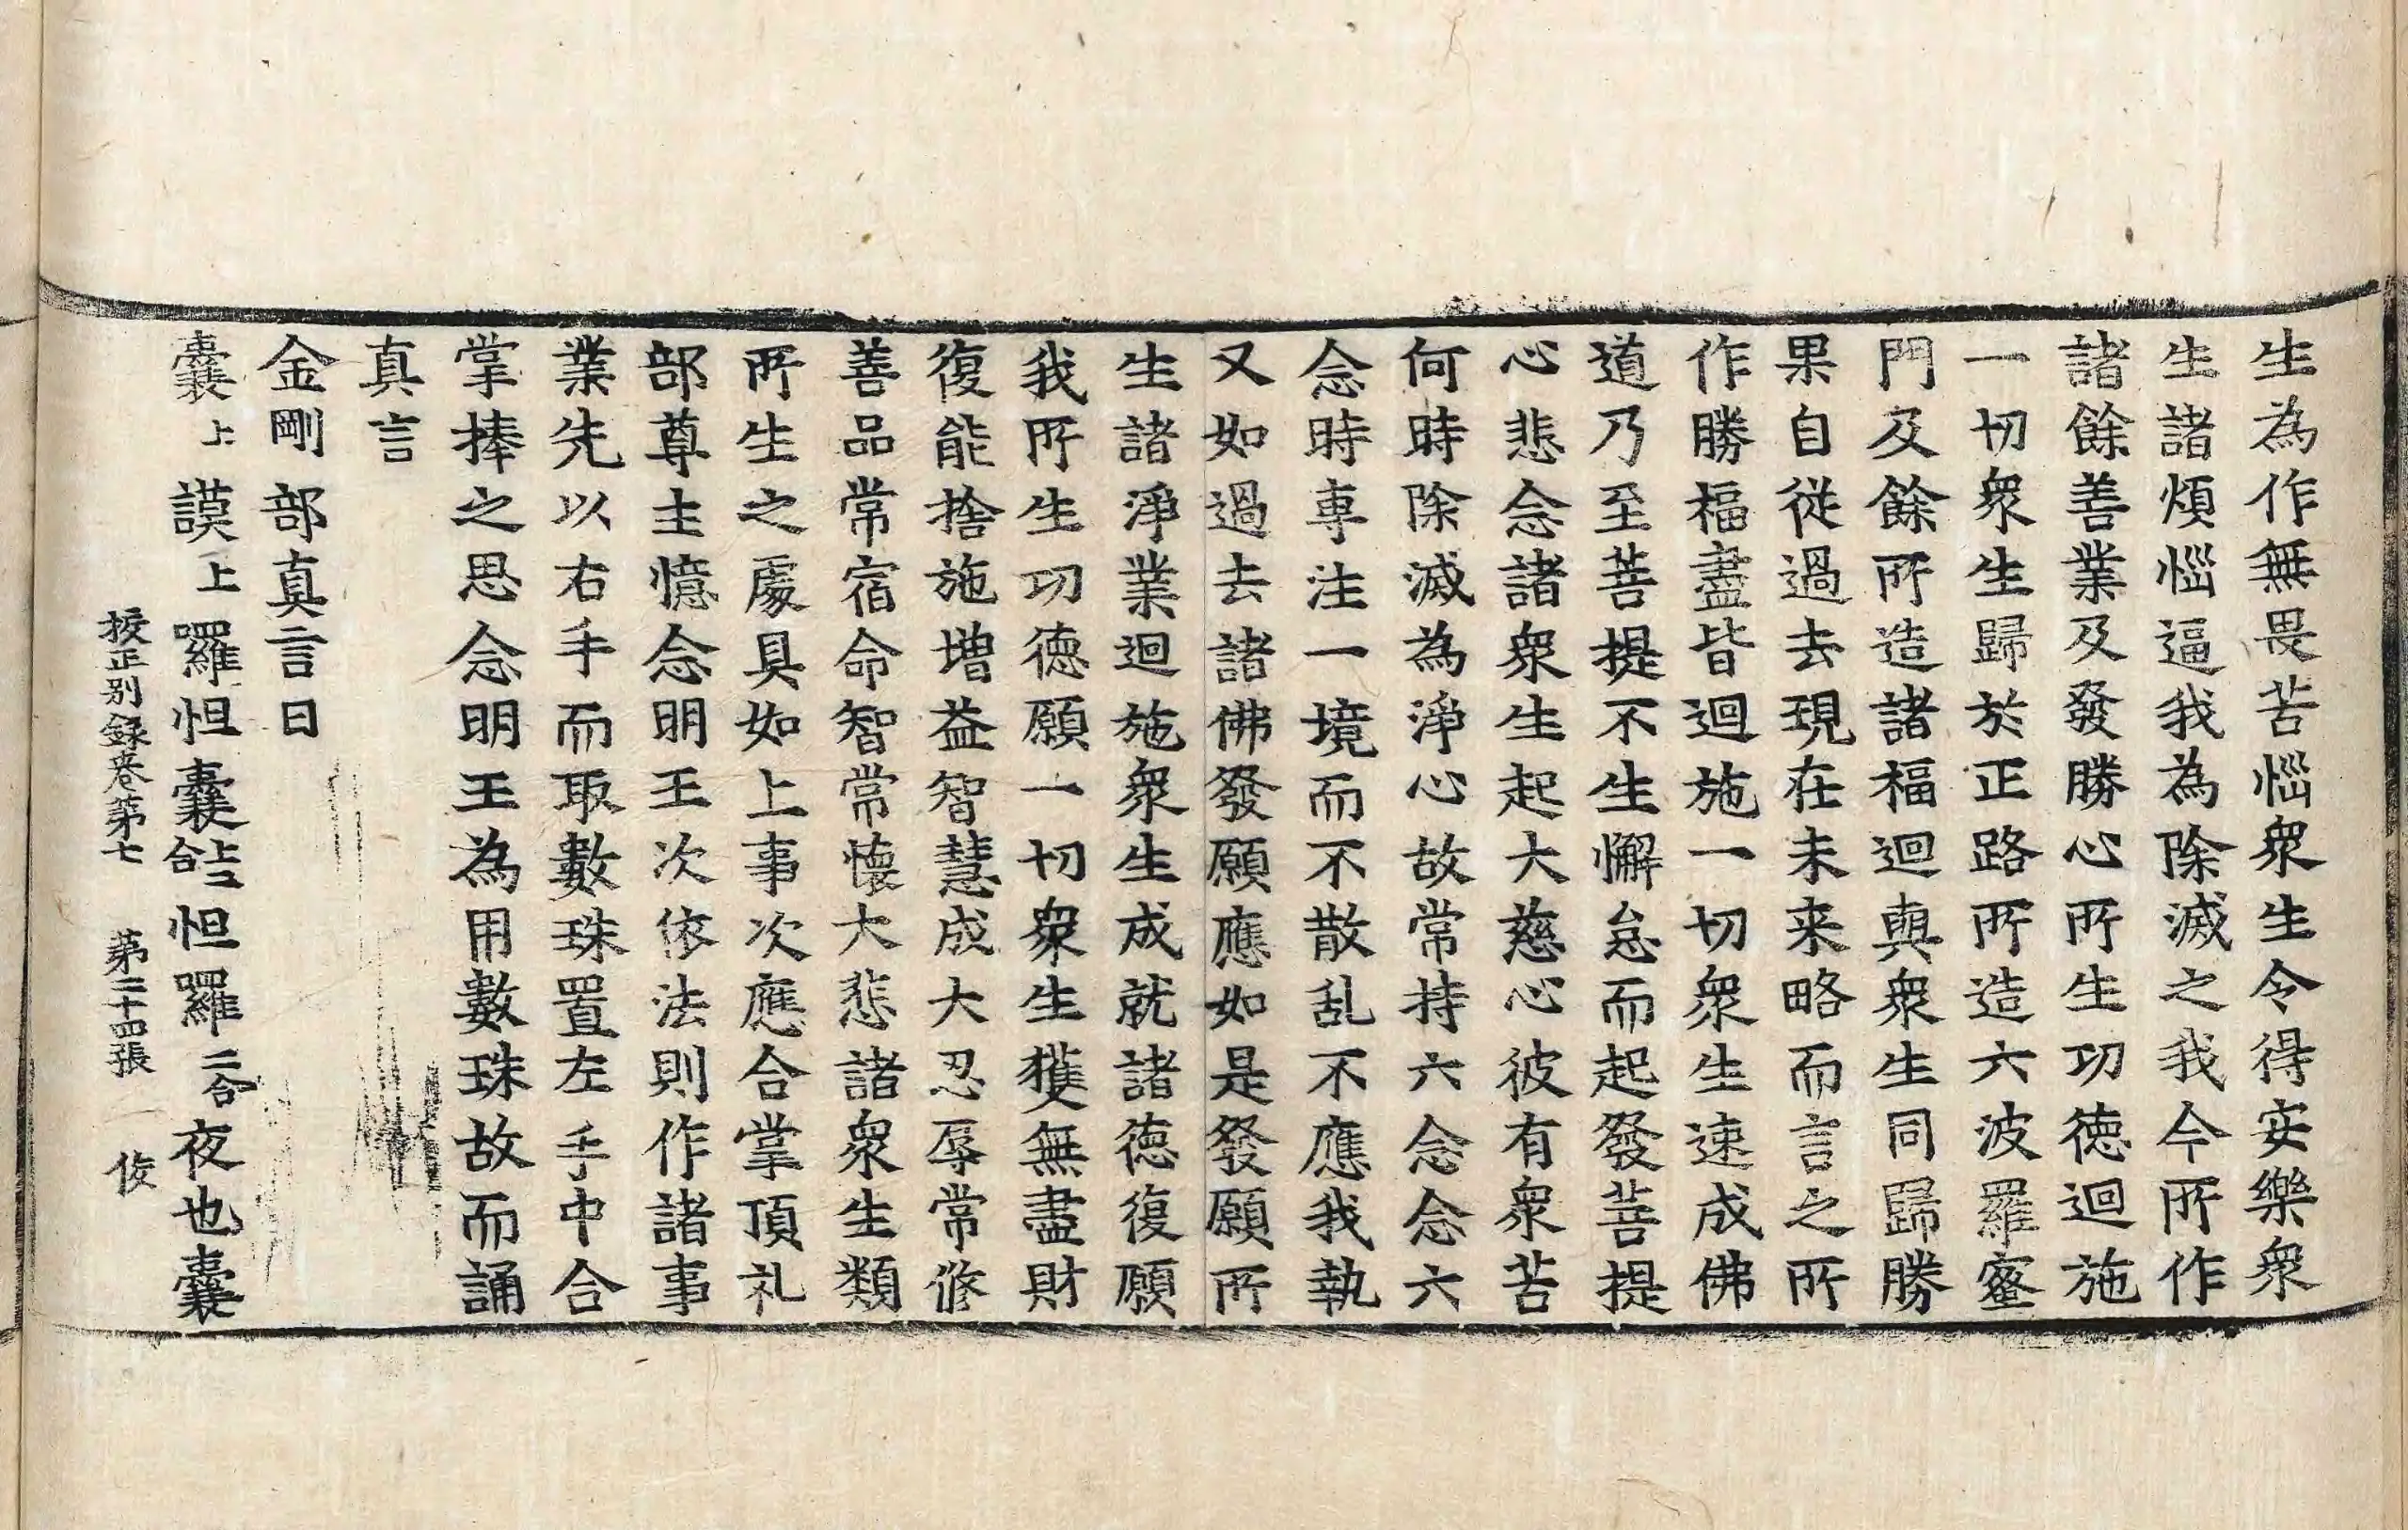 生為作無畏苦惱衆生令得安樂衆
生諸煩惱逼我為除滅之我今所作
諸餘善業及發勝心所生功徳迴施
一切衆生歸於正路所造六波羅蜜
門及餘所造諸福迴與衆生同歸勝
果自從過去現在未来略而言之所
作勝福盡皆迴施一切衆生速成佛
道乃至菩提不生懈怠而起發菩提
心悲念諸衆生起大慈心彼有衆苦
何時除滅為淨心故常持六念念六
念時専注一境而不散乱不應我執
又如過去諸佛發願應如是發願所
生諸淨業迴施衆生成就諸徳復願
我所生功徳願一切衆生獲無盡財
復能捨施增益智慧成大忍辱常修
善品常宿命智常懷大悲諸衆生類
所生之處具如上事次應合掌頂礼
部尊主憶念明王次依法則作諸事
業先以右手而取數珠置左手中合
掌捧之思念明王為用數珠故而誦
真言
金剛部真言曰
曩上謨上羅怛曩上二合怛羅二合夜也曩
挍正别録卷第七 第二十四張 俊